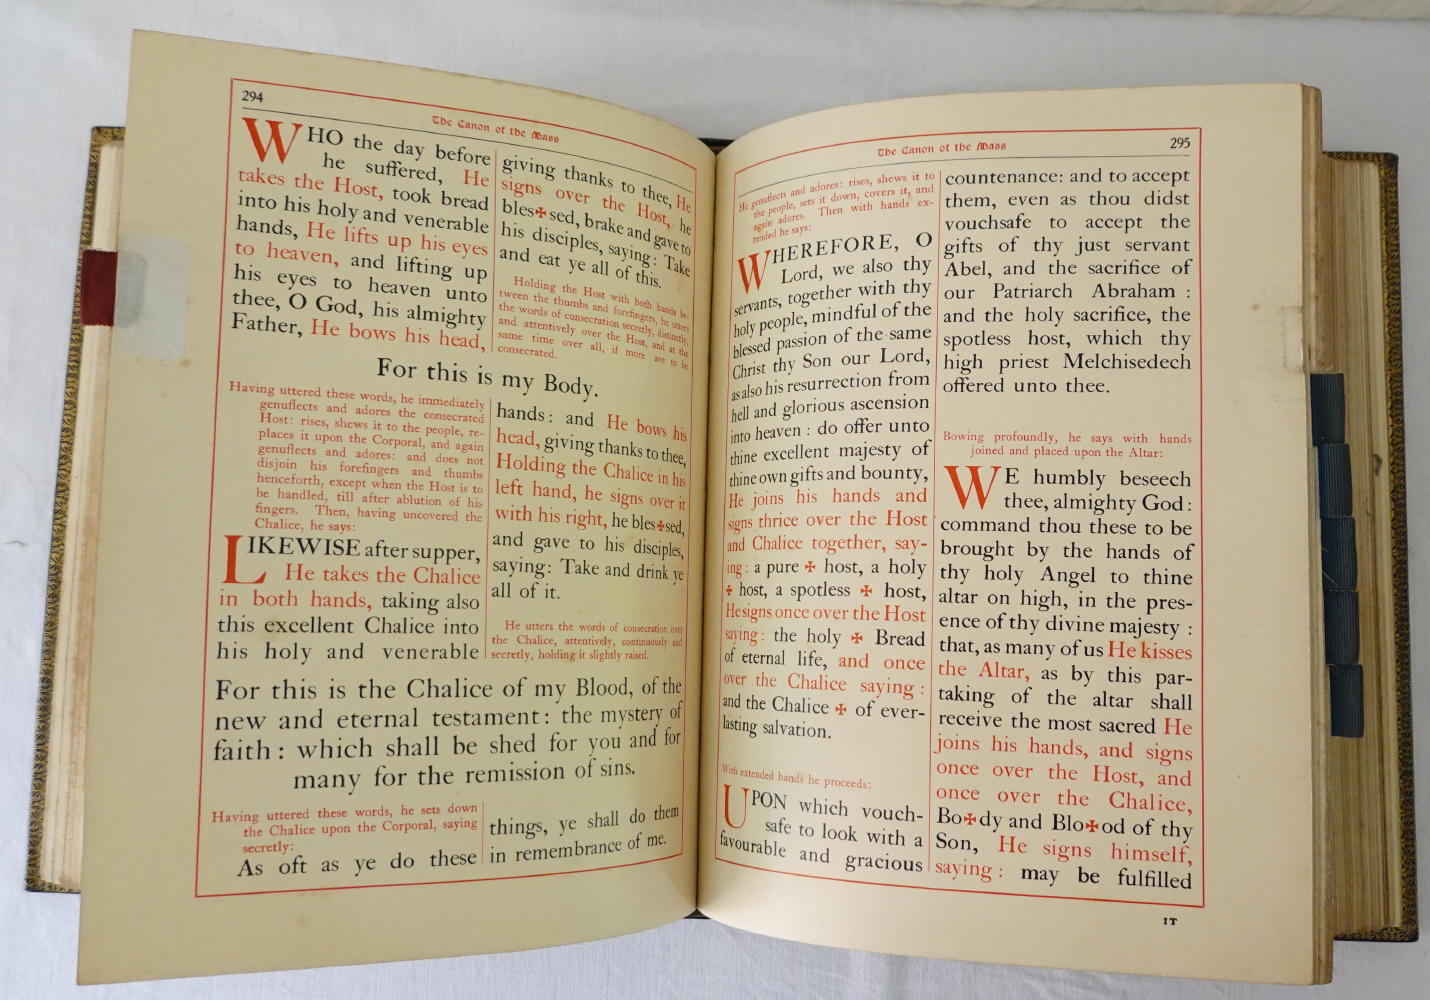 294
The Canon of the Mass
WHO the day before
he suffered, He
takes the Host, took bread
into his holy and venerable
hands, He lifts up his eyes
to heaven, and lifting up
his eyes to heaven unto
thee, O God, his almighty
Father, He bows his head,
giving thanks to thee, He
signs over the Host,
bles✠sed, brake and gave to
his disciples, saying: Take
and eat ye all of this.
he
Holding the Host with both hands be-
tween the thumbs and forefingers, he utters
the words of consecration secretly, distinctly,
and attentively over the Host, and at the
same time over all, if more are to be
consecrated.
For this is my Body.
Having uttered these words, he immediately
genuflects and adores the consecrated
Host: rises, shews it to the people, re-
places it upon the Corporal, and again
genuflects and adores: and does not
disjoin his forefingers and thumbs
henceforth, except when the Host is to
be handled, till after ablution of his
fingers. Then, having uncovered the
Chalice, he says:
LIKEWISE after supper,
He takes the Chalice
in both hands, taking also
this excellent Chalice into
his holy and venerable
hands: and He bows his
head, giving thanks to thee,
Holding the Chalice in his
left hand, he signs over it
with his right, he bles✠sed,
and gave to his disciples,
saying: Take and drink ye
all of it.
He utters the words of consecration over
the Chalice, attentively, continuously and
secretly, holding it slightly raised.
For this is the Chalice of my Blood, of the
new and eternal testament: the mystery of
faith: which shall be shed for you and for
many for the remission of sins.
Having uttered these words, he sets down
the Chalice upon the Corporal, saying
secretly:
As oft as ye do these
things, ye shall do them
in remembrance of me.
The Canon of the Mass
295
He genuflects and adores: rises, shews it to
the people, sets it down, covers it, and
again adores. Then with hands ex-
tended he says:
WHEREFORE, O
Lord, we also thy
servants, together with thy
holy people, mindful of the
blessed passion of the same
Christ thy Son our Lord,
as also his resurrection from
hell and glorious ascension
into heaven: do offer unto
thine excellent majesty of
thine own gifts and bounty,
He joins his hands and
signs thrice over the Host
and Chalice together, say-
ing: a pure ✠ host, a holy
✠ host, a spotless ✠ host,
He signs once over the Host
saying: the holy ✠ Bread
of eternal life, and once
over the Chalice saying:
and the Chalice ✠ of ever-
lasting salvation.
With extended hands he proceeds:
UPON which vouch-
safe to look with a
favourable and gracious
countenance: and to accept
them, even as thou didst
vouchsafe to accept the
gifts of thy just servant
Abel, and the sacrifice of
our Patriarch Abraham:
and the holy sacrifice, the
spotless host, which thy
high priest Melchisedech
offered unto thee.
Bowing profoundly, he says with hands
joined and placed upon the Altar:
WE humbly beseech
thee, almighty God:
command thou these to be
brought by the hands of
thy holy Angel to thine
altar on high, in the pres-
ence of thy divine majesty:
that, as many of us He kisses
the Altar, as by this par-
taking of the altar shall
receive the most sacred He
joins his hands, and signs
once over the Host, and
once over the Chalice,
Bo✠dy and Blo✠od of thy
Son, He signs himself,
saying: may be fulfilled
IT